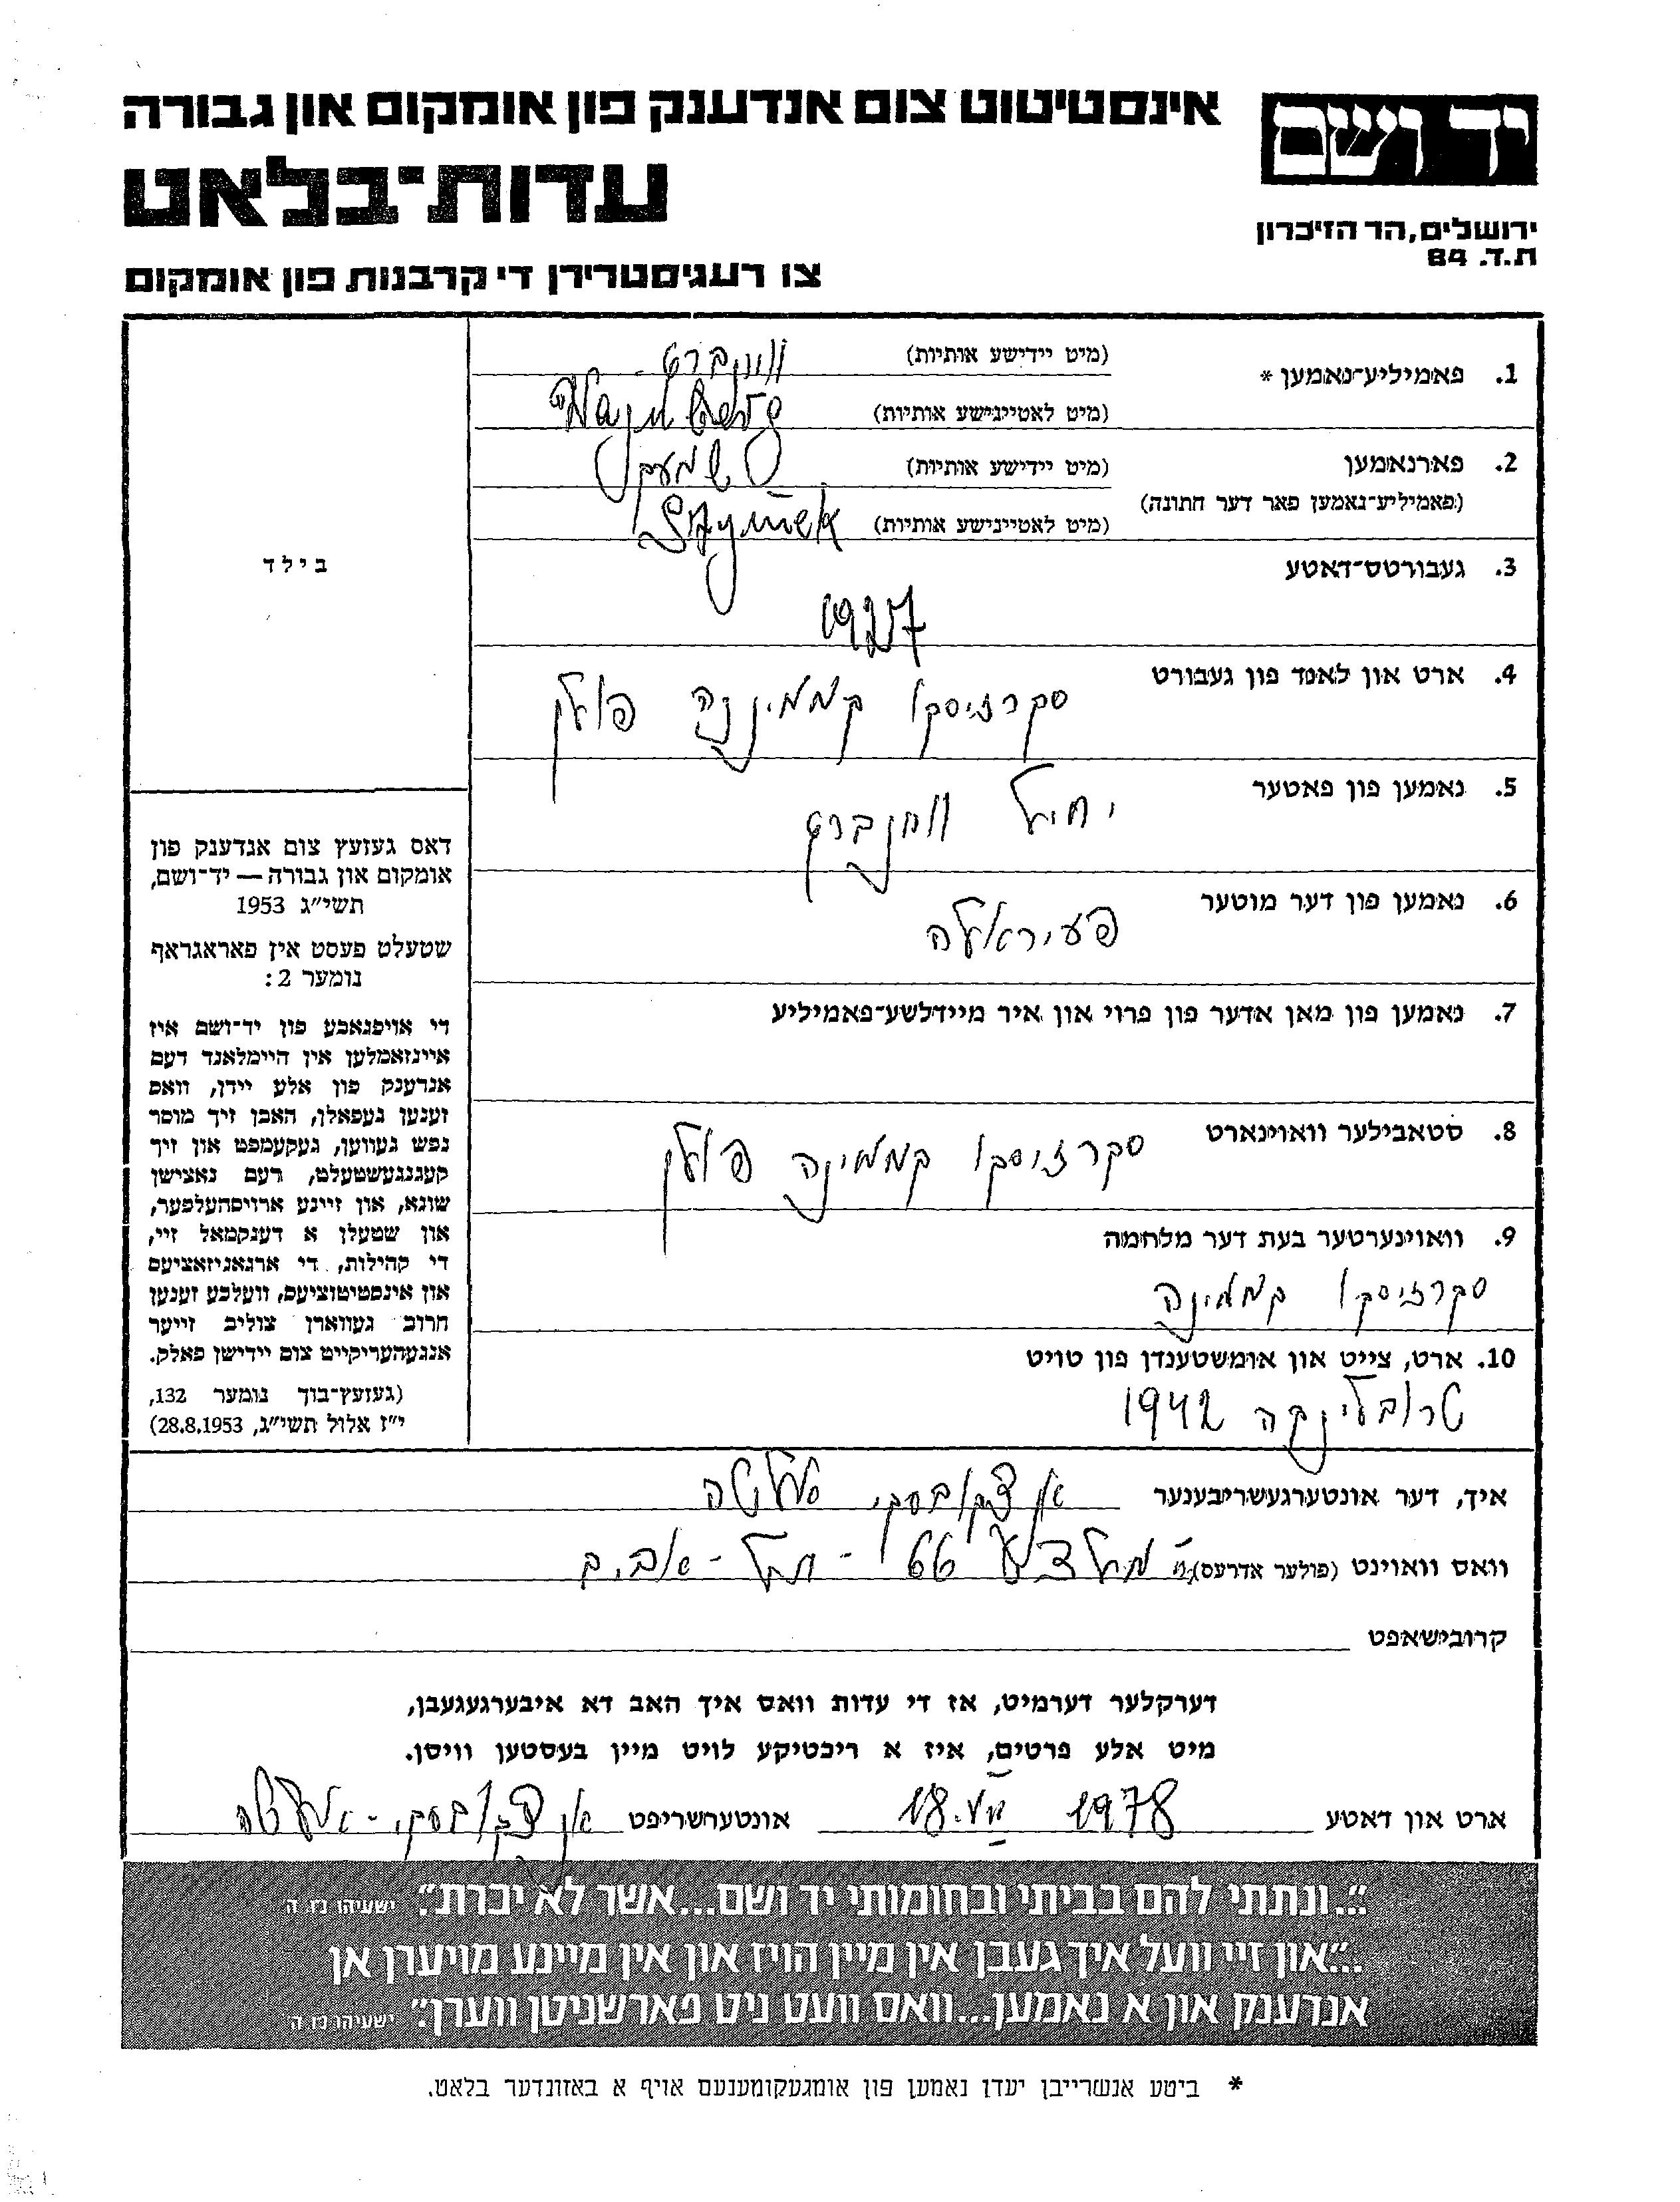 יד ושם
ירושלים, הר הזיכרון
ת.ד. 84
אינסטיטוט צום אנדענק פון אומקום און גבורה
עדות־בלאט
צו רעגיסטרירן די קרבנות פון אומקום
1. פאמיליע־נאמען *
(מיט יידישע אותיות) וויינברט
(מיט לאטיינישע אותיות) Wajnberg
2. פארנאמען
(פאמיליע־נאמען פאר דער חתונה)
(מיט יידישע אותיות) שמעק
(מיט לאטיינישע אותיות) Szymek
3. געבורטס־דאטע
1927
4. ארט און לאנד פון געבורט
סקרזיסקו קממינה פולין
5. נאמען פון פאטער
יחיאל וויינברט
6. נאמען פון דער מוטער
7. נאמען פון מאן אדער פון פרוי און איר מיידלשע־פאמיליע
8. סטאבילער וואוינארט
סקרזיסקו קממינה פולין
9. וואוינערטער בעת דער מלחמה
סקרזיסקו קממינה
10. ארט, צייט און אומשטענדן פון טויט
טרובלינקה 1942
בילד
דאס געזעץ צום אנדענק פון
אומקום און גבורה — יד־ושם,
תשי״ג 1953
שטעלט פעסט אין פאראגראף
נומער 2:
די אויפגאבע פון יד־ושם איז
איינזאמלען אין היימלאנד דעם
אנדענק פון אלע יידן, וואס
זענען געפאלן, האבן זיך מוסר
נפש געווען, געקעמפט און זיך
קעגנגעשטעלט, דעם נאצישן
שונא, און זיינע ארויסהעלפער,
און שטעלן א דענקמאל זיי,
די קהילות, די ארגאניזאציעס
און אינסטיטוציעס, וועלכע זענען
חרוב געווארן צוליב זייער
אנגעהעריקייט צום יידישן פאלק.
(געזעץ־בוך נומער 132,
י״ז אלול תשי״ג, 28.8.1953)
איד, דער אונטערגעשריבענער
וואס וואוינט (פולער אדרעס) 66 - תל-אביב
קרובישאפט
דערקלער דערמיט, אז די עדות וואס איך האב דא איבערגעגעבן,
מיט אלע פרטים, איז א ריכטיקע לויט מיין בעסטען וויסן.
ארט און דאטע 1978 18.VII אונטערשריפט
״...ונתתי להם בביתי ובחומותי יד ושם...אשר לא יכרת״. ישעיהו נז ה
״...און זיי וועל איך געבן אין מיין הויז און אין מיינע מויערן אן
אנדענק און א נאמען...וואס וועט ניט פארשניטן ווערן״. ישעיהו נז ה
* ביטע אנשרייבן יעדן נאמען פון אומגעקומענעם אויף א באזונדער בלאט.